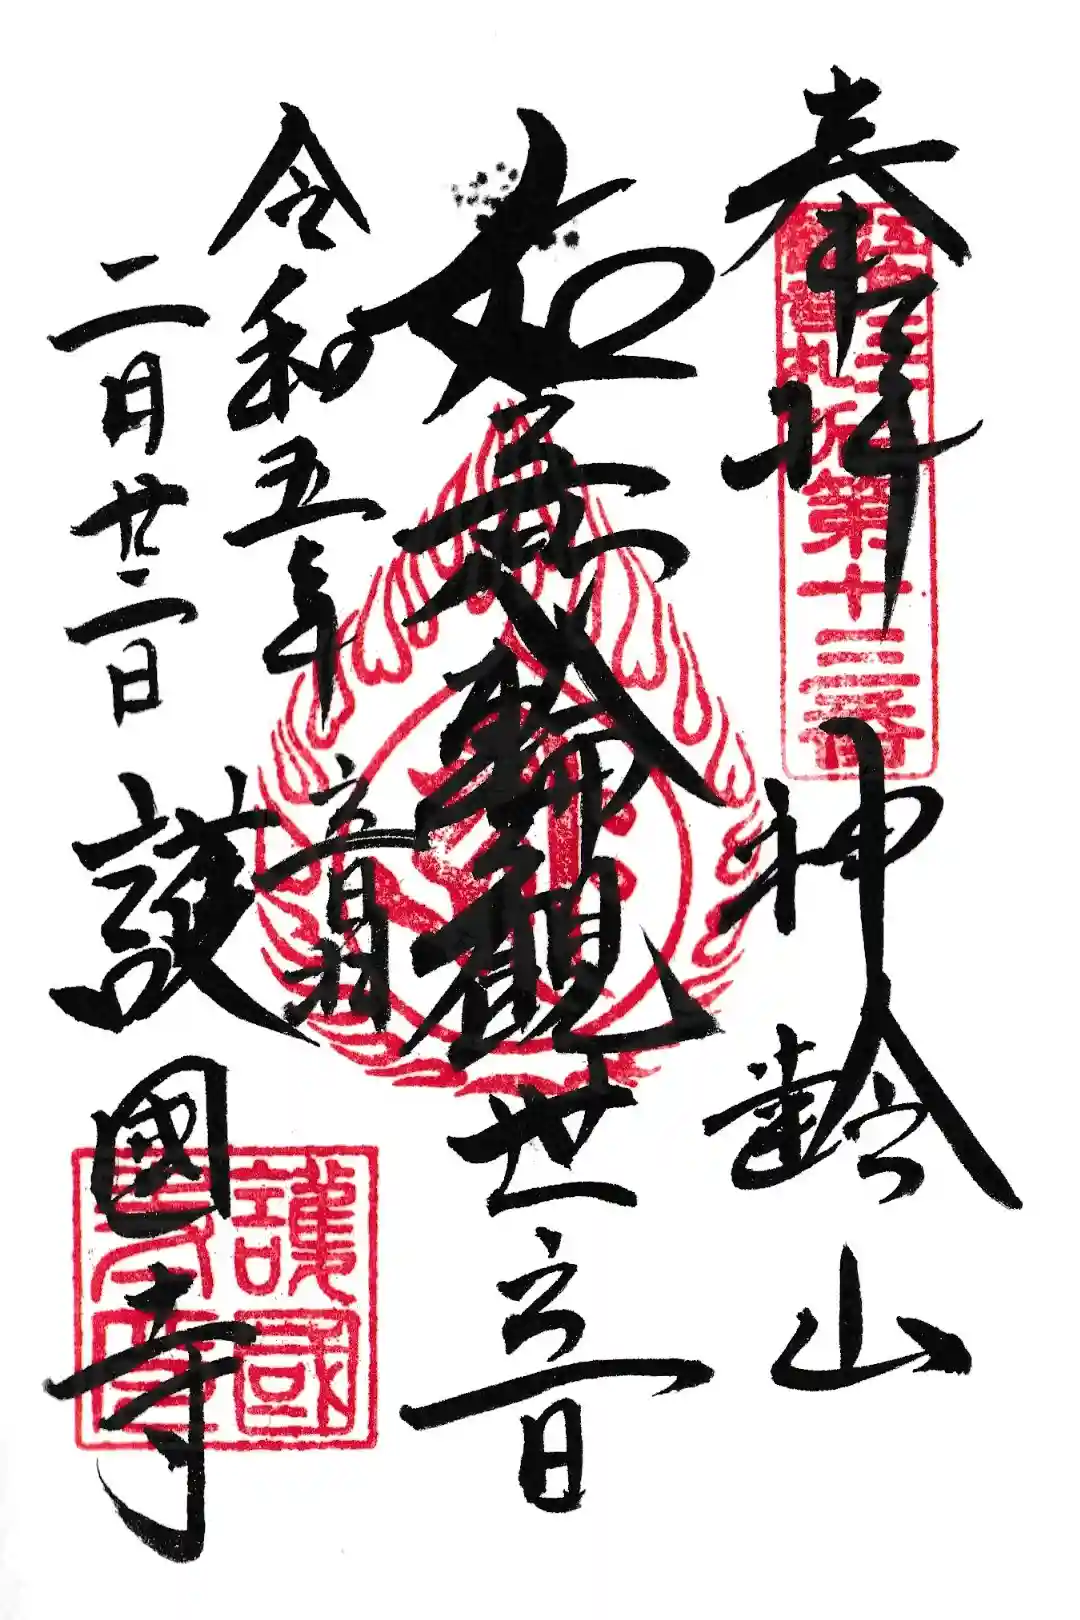 奉拝
神齢山
札所第十三番
如意輪観世音
令和五年
二月廿二日
音羽
護國寺
護國